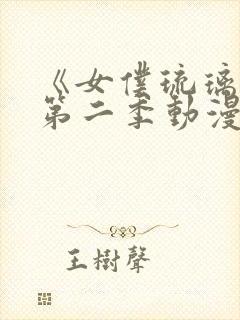 《女僕琉璃
第二季動漫
王樹聲